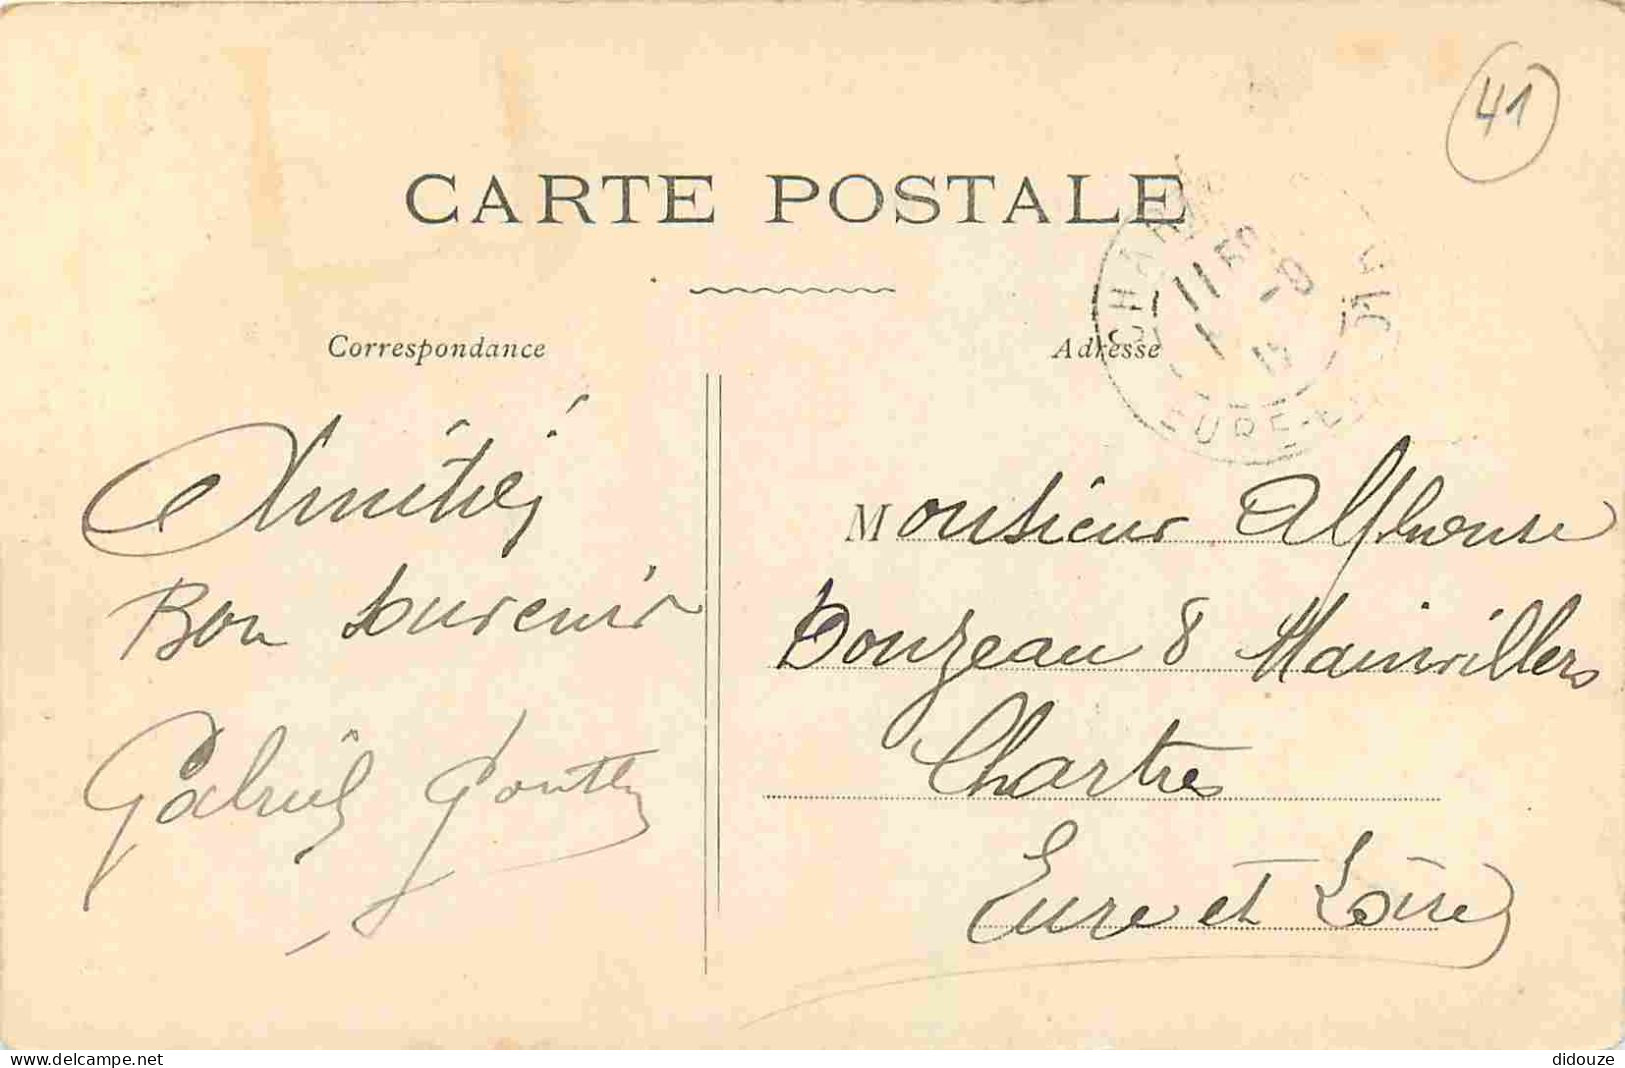 41
CARTE POSTALE
Correspondance
Adresse
Amitiés
Bon souvenir
Gabriel
Monsieur Alphonse
Donzeau 8 Mainvillers
Chartres
Eure et Loire
delcampe.net
didouze